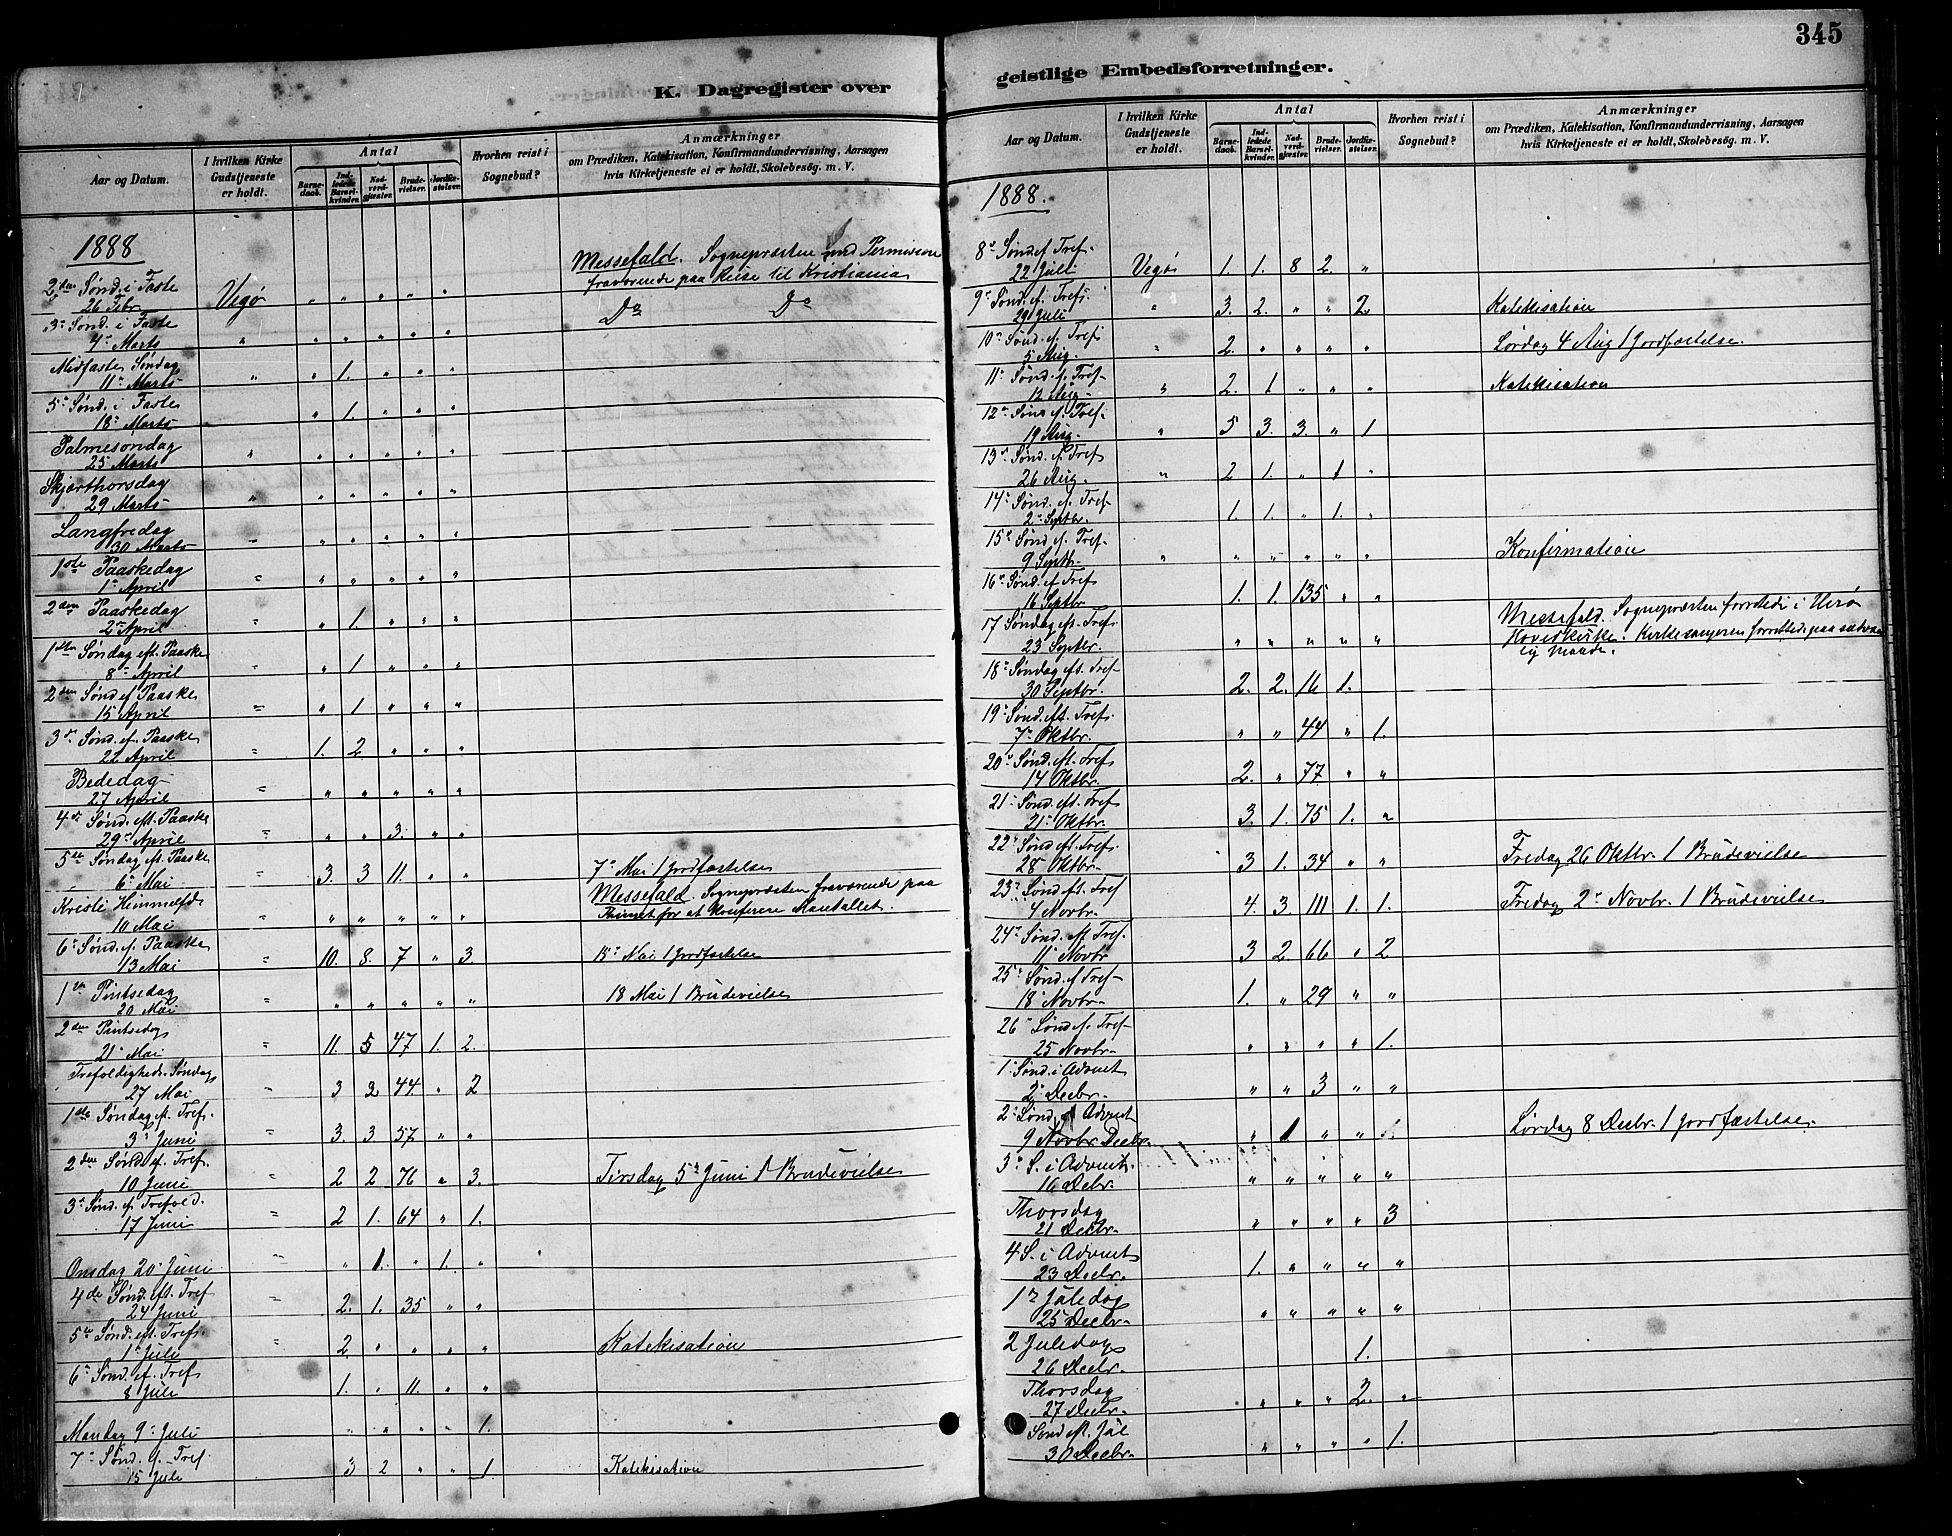 K. Dagregister over
Aar og Datum.
I hvilken Kirke Gudstjeneste er holdt.
Antal
Barnedaab.
Indledede Barselkvinder.
Nadverdgjester.
Brudevielser.
Jordfæstelser.
Hvorhen reist i Sognebud?
Anmærkninger
om Prædiken, Katekisation, Konfirmandundervisning, Aarsagen
hvis Kirketjeneste ei er holdt, Skolebesøg. m. V.
1888
Messefald. Sognepræsten med Permission
fraværende paa Reise til Kristiania
2den Sønd. i Faste
26 Febr. Vegø " " " " "
3die Sønd. i Faste Do Do
4de Marts " " " " " "
Midfaste Søndag
11te Marts " " 1. " " "
5te Sønd. i Faste
18de Marts " 1. " " "
Palmesøndag
25 Marts " " " " " "
Skjærthorsdag
29 Marts " " " " " "
Langfredag
30 Marts " " " " " "
1ste Paaskedag
1ste April " " " " " "
2den Paaskedag
2den April " " 1. " " "
1ste Søndag eft. Paaske
8de April " " 1. " " "
2den Sønd. ef. Paaske
15 April " " 1. " " "
3die Sønd. ef. Paaske
22 April " 1. 2. " " "
Bededag
27 April " " " " " "
4de Sønd. eft. Paaske
29de April " " " 3. " "
5te Søndag eft. Paaske
6te Mai " 3. 3 11. " " 7de Mai 1 Jordfæstelse
Kristi Himmelfd. Messefald. Sognepræsten fraværende paa
10 Mai " " " " " " for at Konferere Mantallet.
6te Sønd. ef. Paaske
13 Mai " 10. 8. 7 " 3. 15de Mai 1 Jordfæstelse
1ste Pintsedag
20 Mai " " " " " " 18 Mai 1 Brudevielse
2den Pintsedag
21de Mai " 11. 5 47 1. 2.
Trefoldigheds Søndag
27 Mai " 3 2 44. " 2
1ste Søndag ef. Tref.
3die Juni " 3. 3 57 " "
2den Sønd. ef. Tref.
10 Juni " 2 2 76 " 3. Tirsdag 5te Juni 1 Brudevielse
3die Sønd. ef. Trefold.
17 Juni " 2 1. 64 " 1.
Onsdag 20de Juni " " 1. " 1. "
4de Sønd. eft. Tref
24 Juni " 2. 1. 35 " "
5te Sønd. eft. Tref.
1ste Juli " 2. " " " " Katekisation
6te Sønd. ef. Tref
8 Juli 1. " 11. " "
Mandag 9de Juli " " " " 1.
7de Sønd. ef. Tref.
15 Juli 3 2 " " 1. Katekisation
345
geistlige Embedsforretninger.
Aar og Datum.
I hvilken Kirke Gudstjeneste er holdt.
Antal
Barnedaab.
Indledede Barselkvinder.
Nadverdgjester.
Brudevielser.
Jordfæstelser.
Hvorhen reist i Sognebud?
Anmærkninger
om Prædiken, Katekisation, Konfirmandundervisning, Aarsagen
hvis Kirketjeneste ei er holdt, Skolebesøg. m. V.
1888.
8de Sønd. ef. Tref.
22 Juli Vegø 1. 1. 8 2. "
9de Sønd. ef. Tref.
29 Juli " 3. 2. " " 2. Katekisation
10de Sønd. ef. Tref.
5 Aug. " 2. " " " " Lørdag 4 Aug 1 Jordfæstelse.
11te Sønd. ef. Tref.
12 Aug. " 2. 1 " " " Katekisation
12te Sønd. ef. Tref.
19 Aug. " 5 3. 3. " 1
13de Sønd. ef. Tref
26 Aug. " 2 1. " 1 "
14de Sønd. ef. Tref.
2den Septbr. 1. 1. " 1. "
15de Sønd. ef. Tref.
9 Septbr. " " " " " " Konfirmation
16de Sønd. ef. Tref.
16 Septbr. 1. 1. 135 " "
17 Søndag eft. Tref. Messefald. Sognepræsten forrettede i Herø
23 Septbr. " " " " " Hovedkirke. Kirkesangeren forrettede paa sædvan
lig Maade.
18de Søndag eft. Tref.
30 Septbr. 2. 2. 16 1.
19de Sønd. eft. Tref.
7de Oktbr. " " 44 " 1.
20de Sønd. eft. Tref.
14 Oktbr. 2. " 77 " "
21de Sønd. eft. Tref
21de Oktbr. 3. 1. 75 1. "
22de Sønd. eft. Tref.
28 Oktbr. 3 1. 34 " " Fredag 26 Oktbr. 1 Brudevielse
23de Sønd. eft. Tref
4 Novbr. 4. 3. 111 1. 1. Fredag 2den Novbr. 1 Brudevielse
24de Sønd. ef. Tref.
11te Novbr 3 2. 66 " 2
25de Sønd. ef. Tref.
18de Novbr. 1. " 29 " "
26de Sønd. ef. Tref.
25 Novbr. " " " " 1.
1ste Sønd. i Advent
2den Decbr. " " 3 " "
2den Sønd. i Advent
9 Novbr. Decbr. " 1 " " Lørdag 8 Decbr. 1 Jordfæstelse.
3die S. i Advent.
16 Decbr. " " " " "
Thorsdag
21 Decbr. " " " " 3
4 S. i Advent
23 Decbr. 1. " " " "
1ste Juledag
25 Decbr. " " " " "
2 Juledag
26 Decbr. 1.
Thorsdag
27 Decbr. " " " 2. "
Sønd. eft. Jul
30 Decbr. " " " " 1.